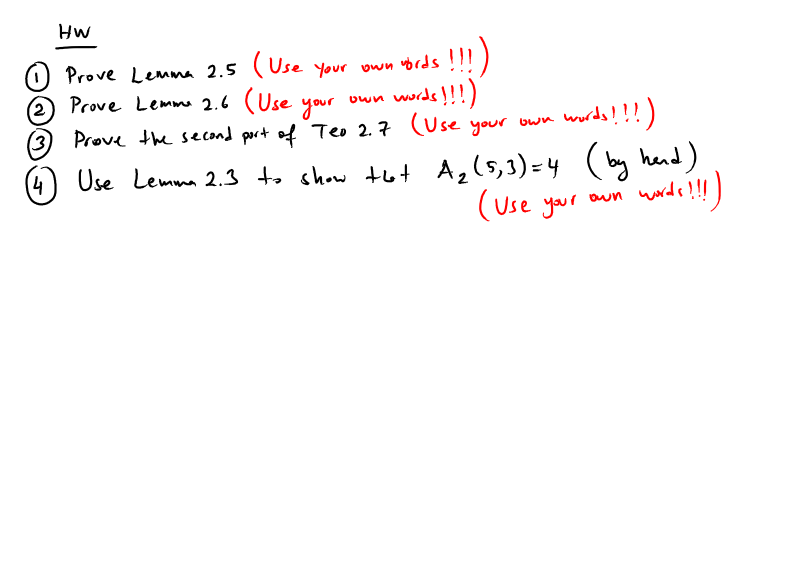 HW
① Prove Lemma 2.5 (Use your own words!!!)
② Prove Lemma 2.6 (Use your own words!!!)
③ Prove the second part of Teo 2.7 (Use your own words!!!)
④ Use Lemma 2.3 to show that A₂(5,3)=4 (by hand)
(Use your own words!!!)